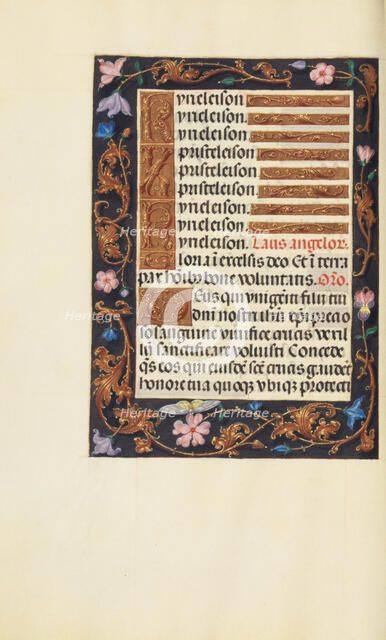 Kyrieleison
yrieleison.
yrieleison.
Xpristeleison
xpristeleison.
xpristeleison.
Kyrieleison.
yrieleison.
yrieleison. Laus angelor:
loria ī excelsis deo Et ī terra
pax hoībꝫ bone voluntatis. Oro.
Deus qui vnigeniti filii tui
dnī nostri ihū xpī precio
so sanguine viuifice crucis vexil
lū sanctificare voluisti Concede
qs eos qui eiusdē scē crucis gaudēt
honore tua quoqꝫ vbiqꝫ protecti
Heritage Heritage
Heritage Heritage
Heritage Heritage
Heritage Heritage